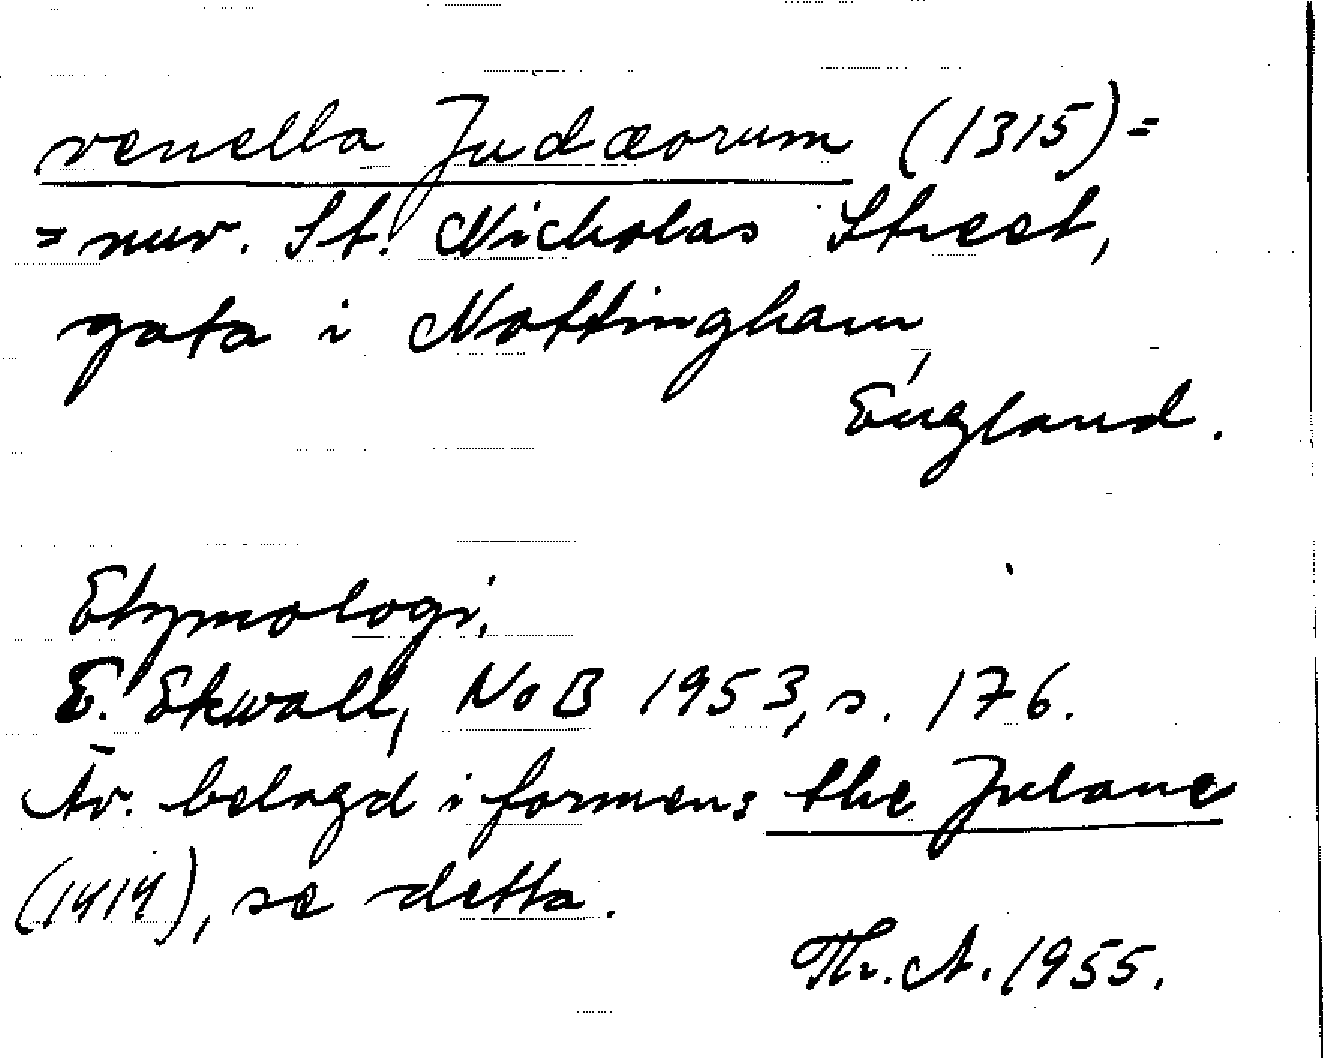 venella Judæorum (1315) =
= nuv. St. Nicholas Street,
gata i Nottingham,
England.
Etymologi,
E. Ekwall, NoB 1953, s. 176.
Äv. belagd i formen: the Julane
(1414), se detta.
Th. A. 1955.